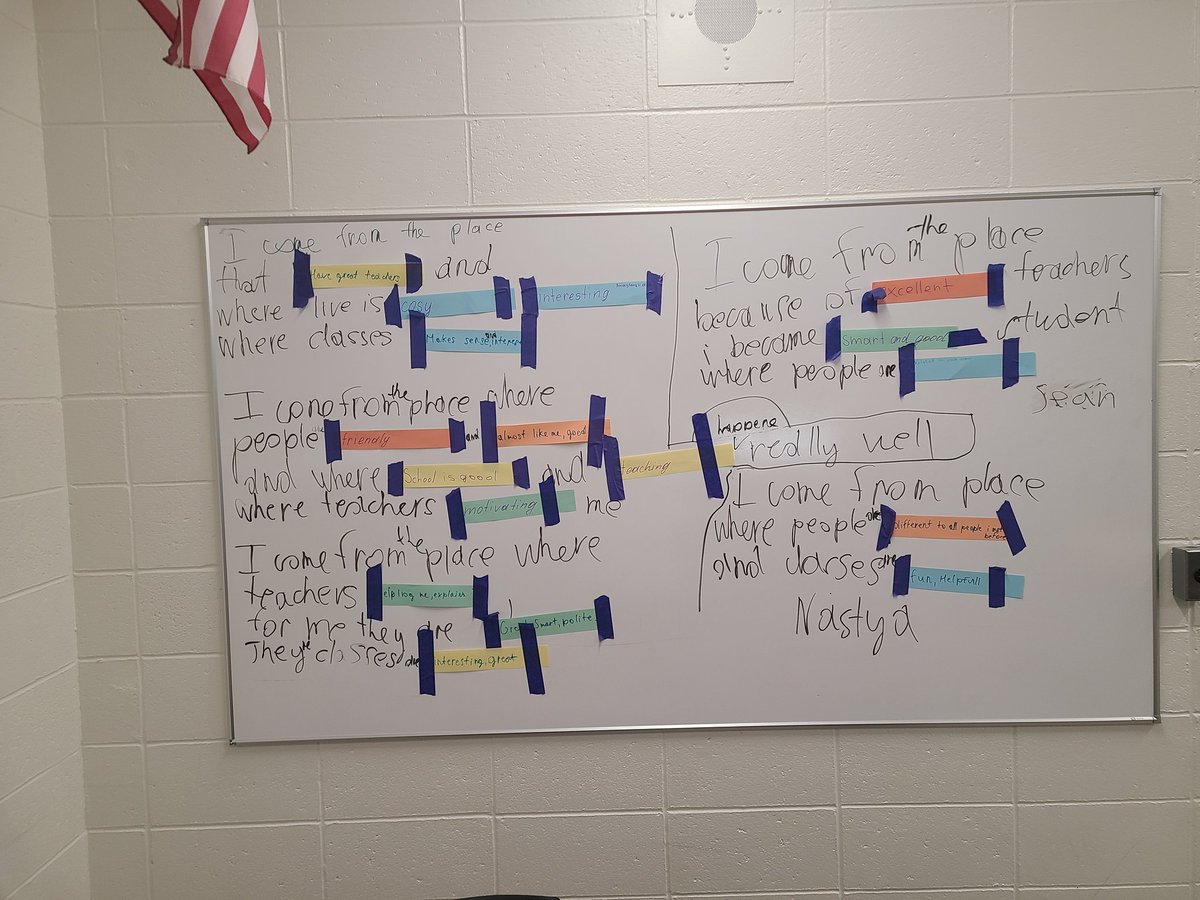 I come from the place
that Have great teachers and
where live is cosy interesting
where classes Makes sense, and interes
I come from the place where
people friendly and almost like me, good
and where School is good and teaching happens really well
where teachers motivating me
I come from the place where
teachers elping me, explains
for me they are Great, Smart, polite
They classes are interesting, great
I come from the place
because of excellent teachers
i became Smart and good student
where people are
Jean
I come from place
where people are different to all people i met before
and classes are fun, Helpfull
Nastya